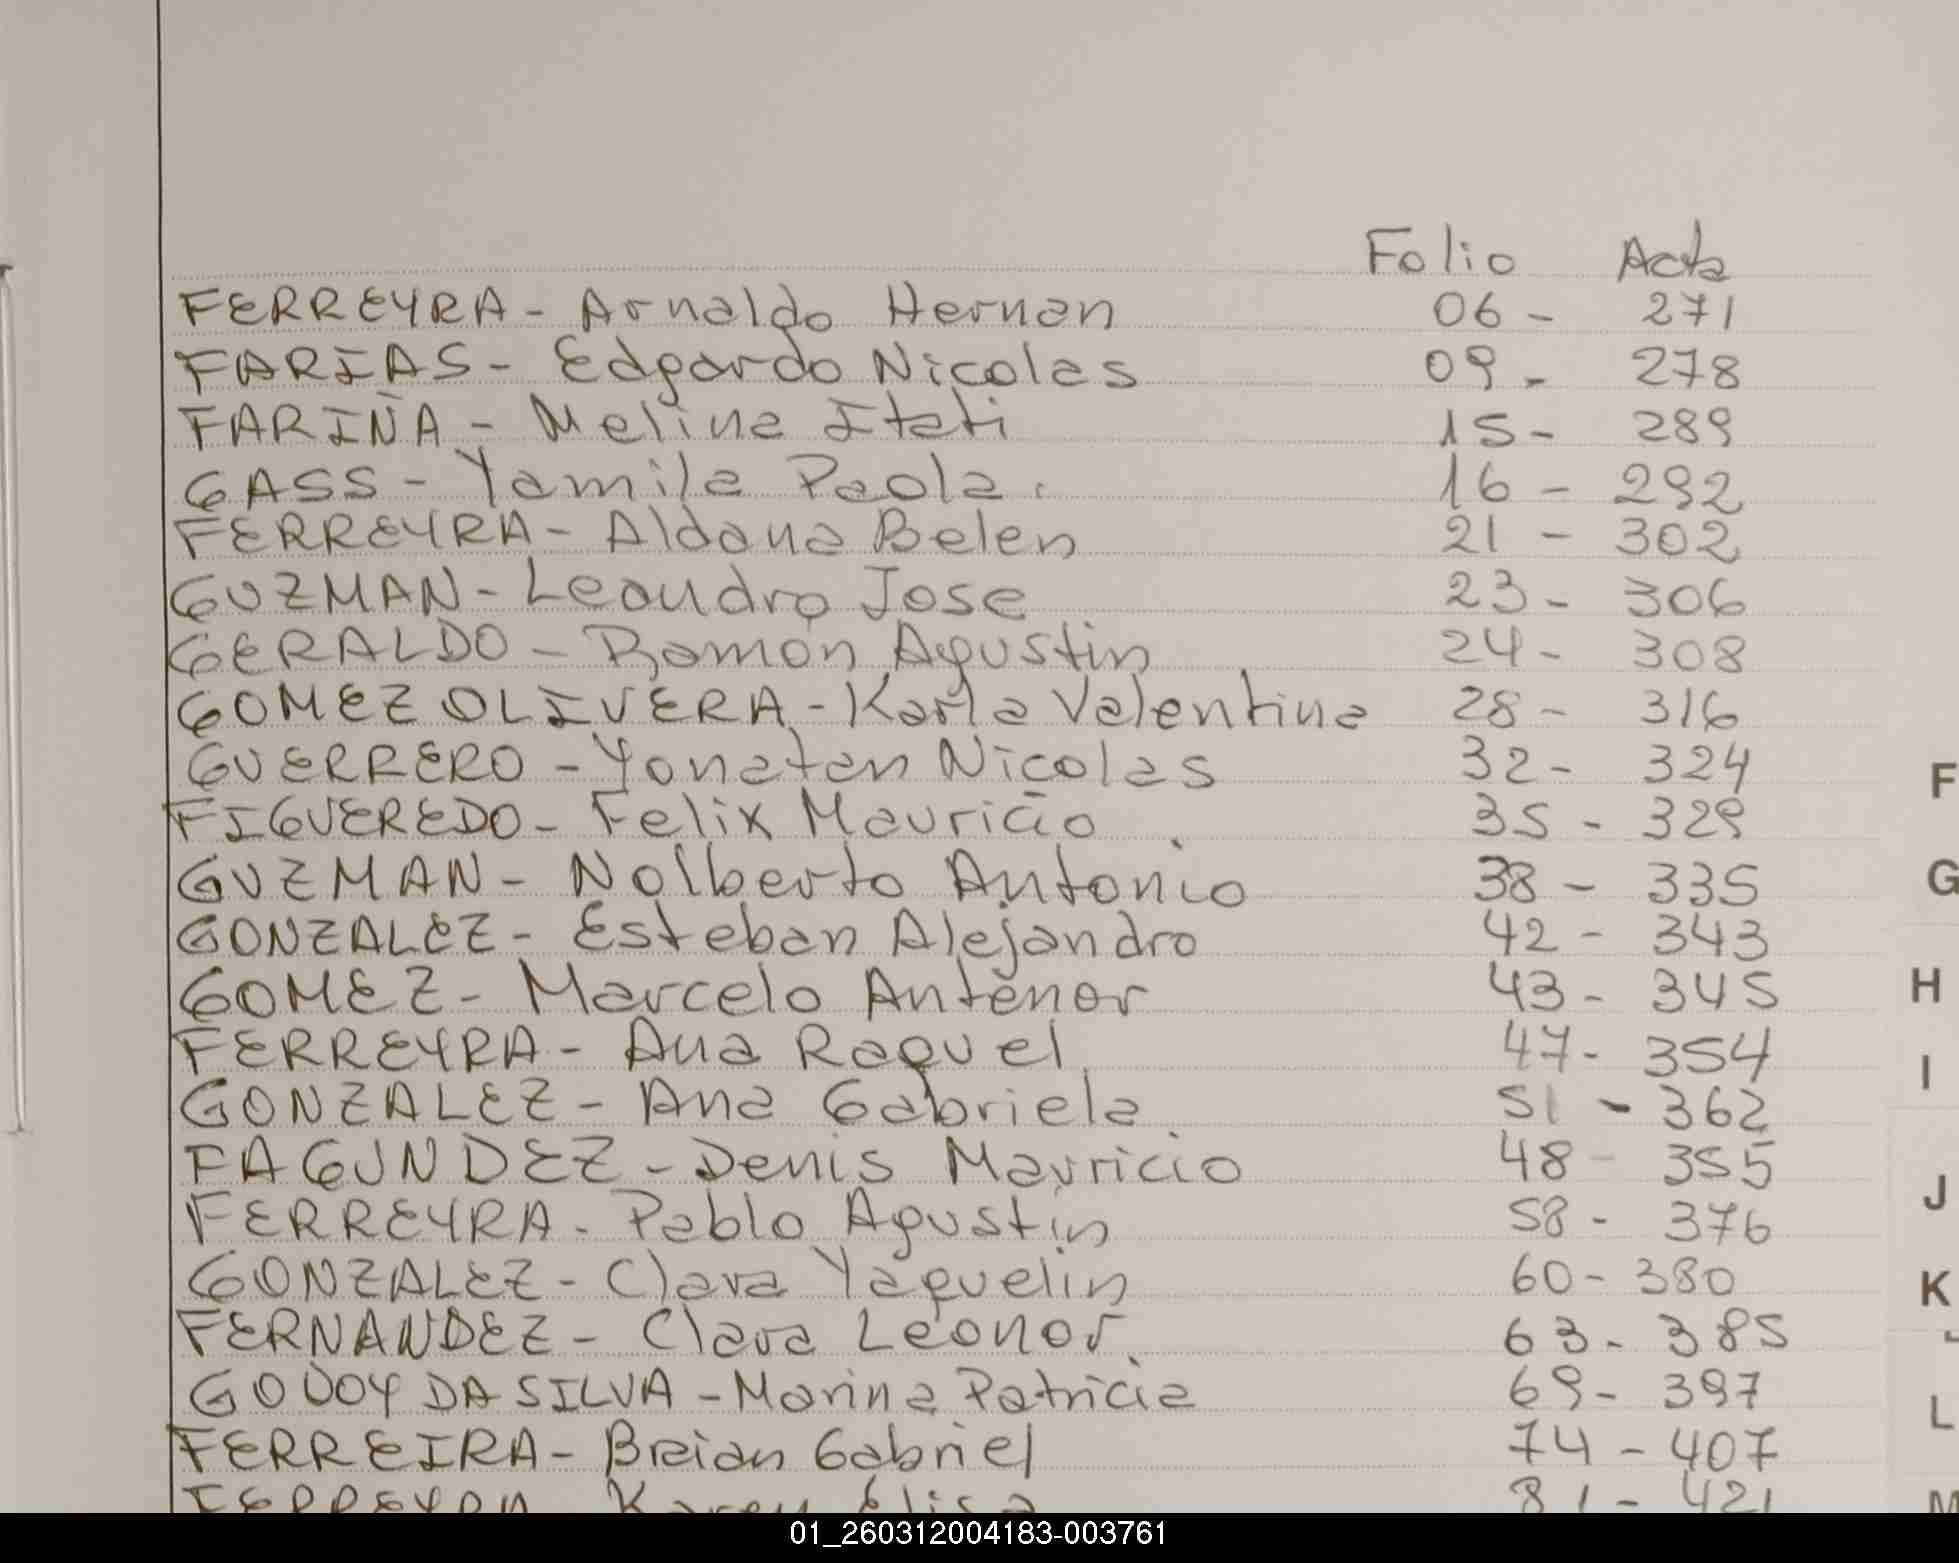 Folio Acta
FERREYRA - Arnaldo Hernan 06 - 271
FARIAS - Edgardo Nicolas 09 - 278
FARIÑA - Melina Itati 15 - 289
GASS - Yamila Paola. 16 - 292
FERREYRA - Aldana Belen 21 - 302
GUZMAN - Leandro Jose 23 - 306
GERALDO - Ramon Agustin 24 - 308
GOMEZ OLIVERA - Karla Valentina 28 - 316
GUERRERO - Yonatan Nicolas 32 - 324
F
FIGUEREDO - Felix Mauricio 35 - 329
GUZMAN - Nolberto Antonio 38 - 335
G
GONZALEZ - Esteban Alejandro 42 - 343
GOMEZ - Marcelo Antenor 43 - 345
H
FERREYRA - Ana Raquel 47 - 354
I
GONZALEZ - Ana Gabriela 51 - 362
FAGUNDEZ - Denis Mauricio 48 - 355
J
FERREYRA - Pablo Agustin 58 - 376
GONZALEZ - Clara Yaquelin 60 - 380
K
FERNANDEZ - Clara Leonor. 63 - 385
GODOY DA SILVA - Marina Patricia 69 - 397
L
FERREIRA - Braian Gabriel 74 - 407
FERREYRA Karen Elisa 81 - 421
M
01_260312004183-003761